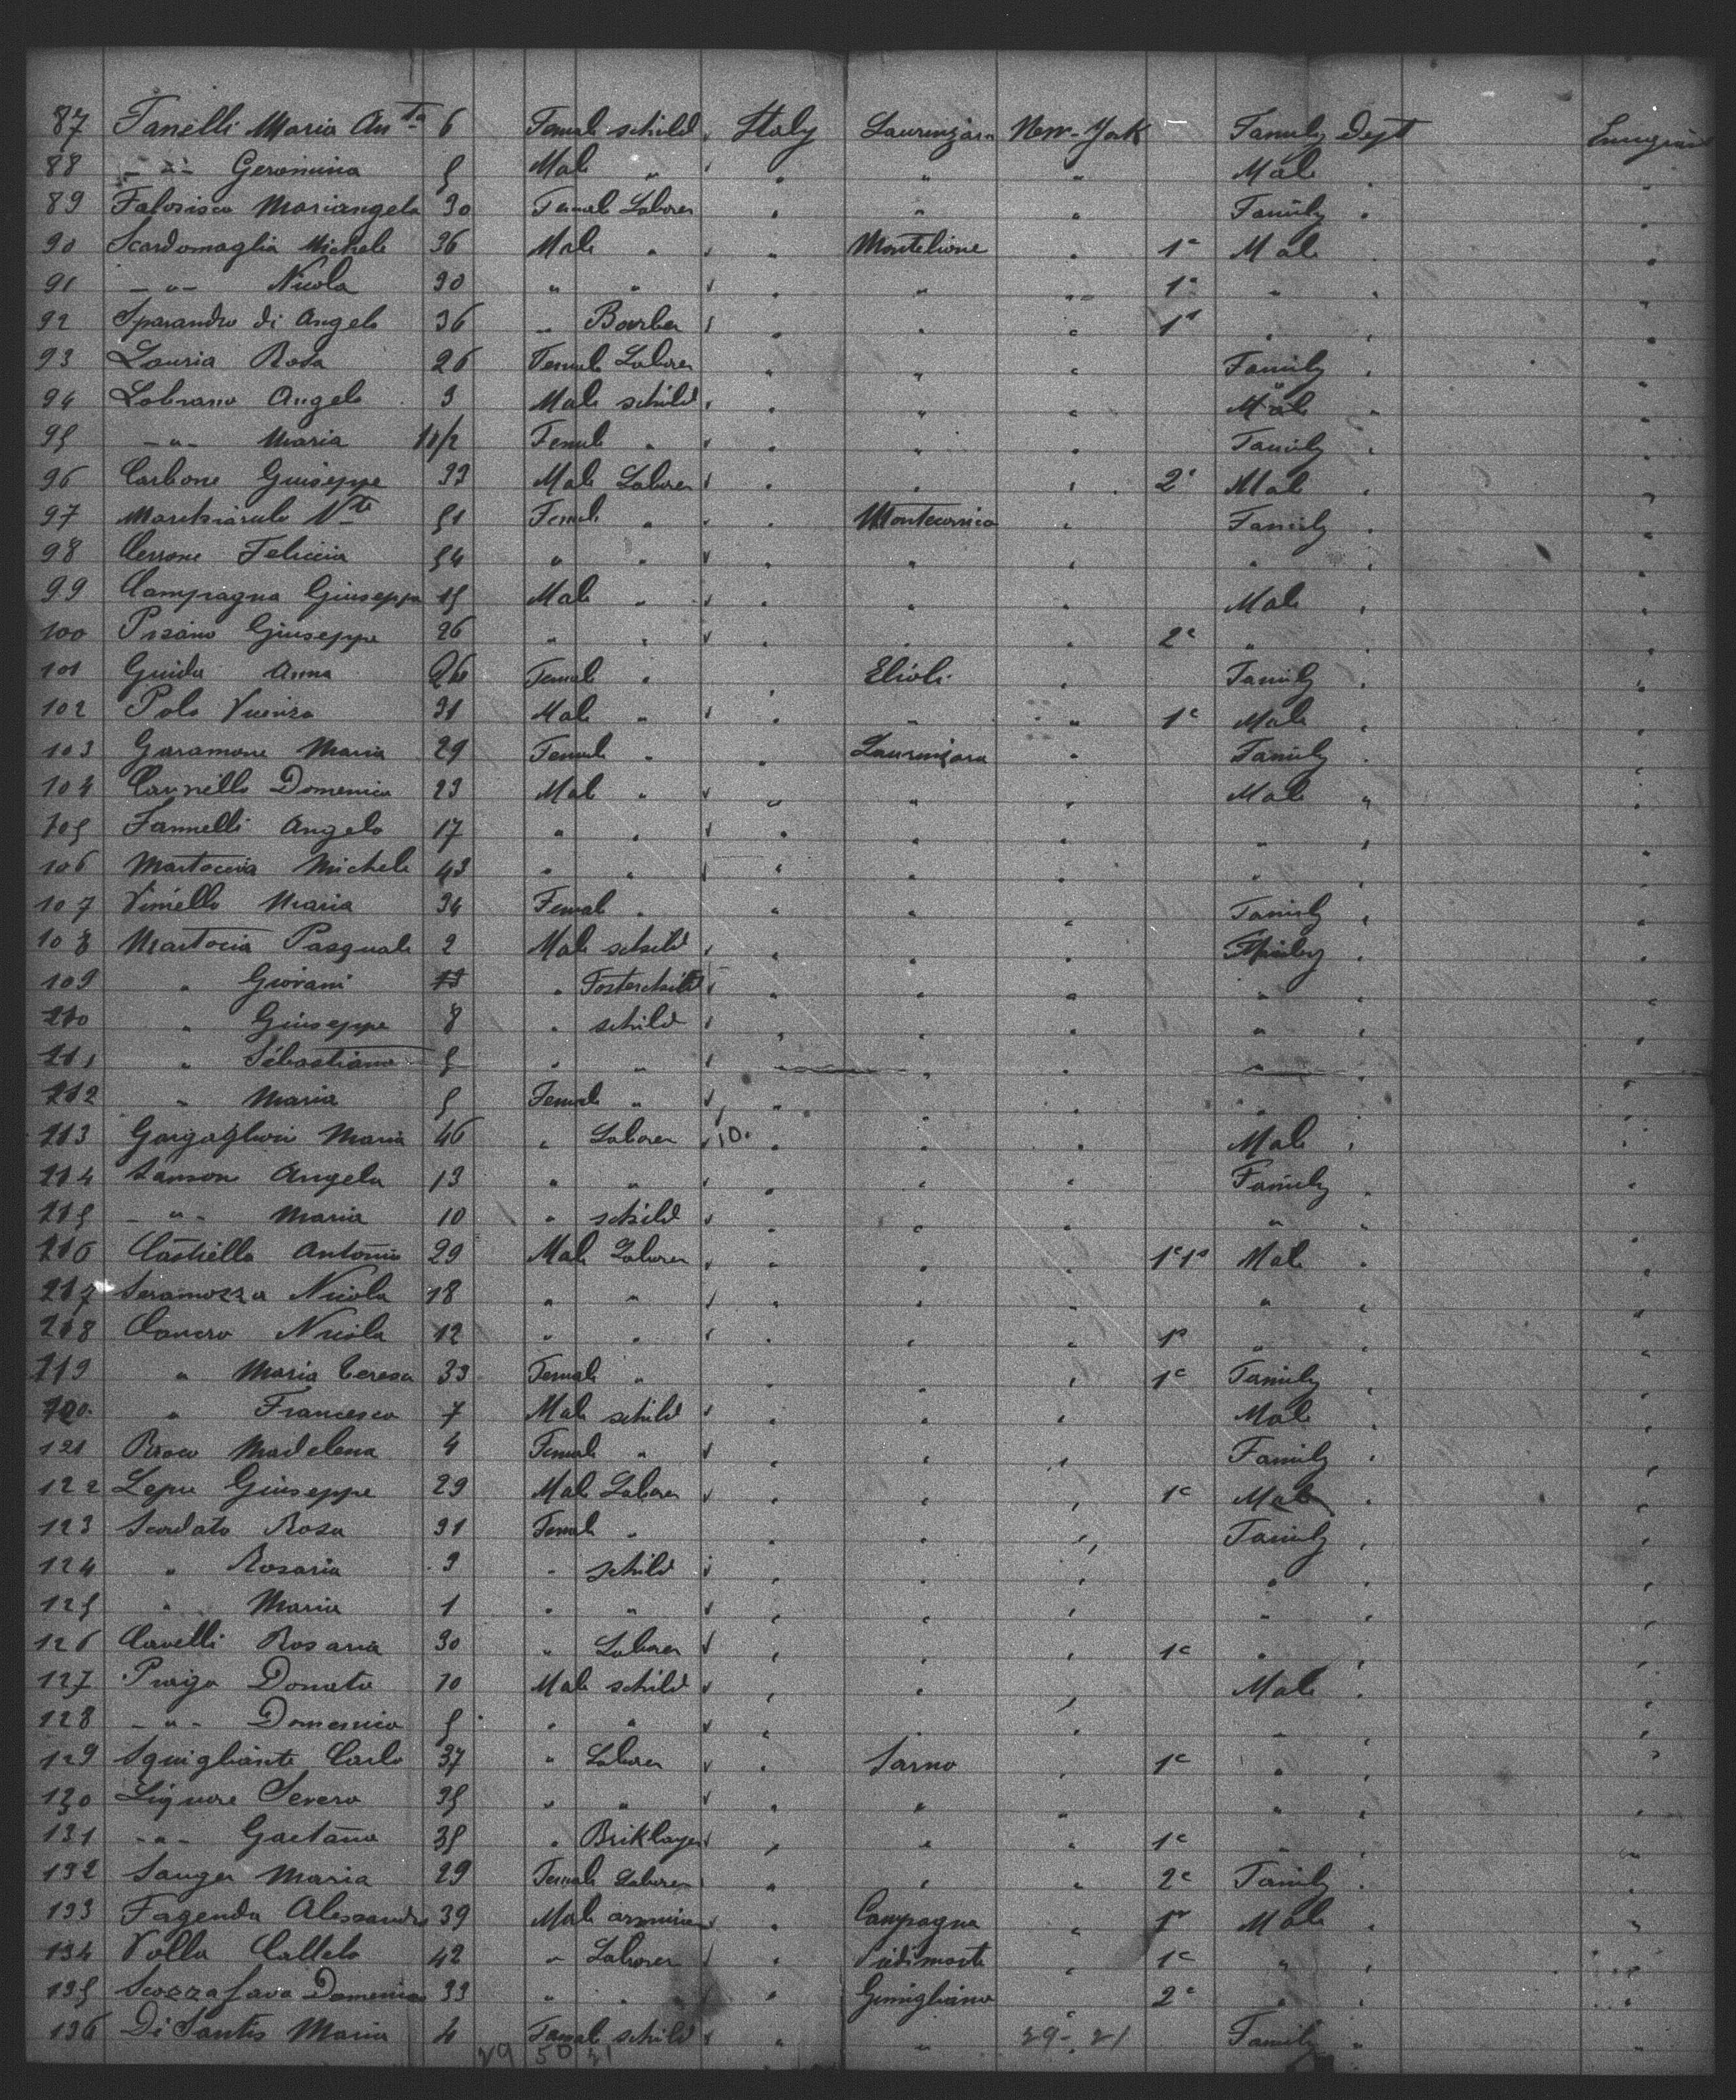 87 Fanelli Maria Anta 6 Female schild Italy Laurenzara New-York Family Dept Emigrant
88 - " - Geromina 5 Male " " " " Male "
89 Falosisco Mariangela 30 Female Laborer " " " Family "
90 Scardomaglia Michele 36 Male " " Montelione " 1c Male "
91 - " - Nicola 30 " " " " " 1c " "
92 Sparandro di Angelo 36 " Bourber " " " 1c " "
93 Lauria Rosa 26 Female Laborer " " " Family "
94 Lobrano Angelo 3 Male schild " " " Male "
95 - " - Maria Female " " " " Family "
96 Carbone Guiseppe 33 Male Laborer " " " 2c Male "
97 51 Female " " Montecornico " Family "
98 Cerrone Felicia 54 " " " " " " "
99 Campagna Giuseppe 15 Male " " " " Male "
100 Pisano Giuseppe 26 " " " " " 2c " "
101 Guida Anna 26 Female " " Elioli " Family "
102 Polo Vicenzo 31 Male " " " " 1c Male "
103 Garamone Maria 29 Female " " Laurenzara " Family "
104 Carriello Domenico 23 Male " " " " Male "
105 Iannelli Angelo 17 " " " " " " "
106 Martoccia Michele 43 " " " " " " "
107 Viniello Maria 34 Female " " " " Family "
108 Martocia Pasquale 2 Male schild " " " Family "
109 " Giovani 13 " Fosterchild " " " " "
110 " Giuseppe 8 " schild " " " " "
111 " Sebastiano 5 " " " " " " "
112 " Maria 5 Female " " " " " "
113 Gargaglioni Maria 46 " Laborer 10. " " " Male "
114 Sansone Angela 13 " " " " " Family "
115 - " - Maria 10 " schild " " " " "
116 Castiello Antonio 29 Male Laborer " " " 1c1s Male "
117 Seramozza Nicola 18 " " " " " " "
118 Canero Nicola 12 " " " " " 1s " "
119 " Maria Teresa 33 Female " " " " 1c Family "
120. " Francesco 7 Male schild " " " Male "
121 Madelena 4 Female " " " " Family "
122 Lepu Giuseppe 29 Male Laborer " " " 1c Male "
123 Scordato Rosa 31 Female " " " " Family "
124 " Rosaria 3 " schild " " " " "
125 " Maria 1 " " " " " " "
126 Cavelli Rosaria 30 " Laborer " " " 1c " "
127 Donato 10 Male schild " " " Male "
128 - " - Domenico 5 " " " " " " "
129 Squigliante Carlo 37 " Laborer " Sarno " 1c " "
130 Liguore Severo 35 " " " " " " "
131 - " - Gaetano 35 " Briklayer " " " 1c " "
132 Sauger Maria 29 Female Laborer " " " 2c Family "
133 Fazenda Alessandro 39 Male " Campagna " Male "
134 Volla Callelo 42 " Laborer " Piedimonte " 1c " "
135 Scozzafava Domenico 33 " " " Gimigliano " 2c " "
136 Di Santis Maria 4 Female schild " " 29-21 Family "
29 50 21